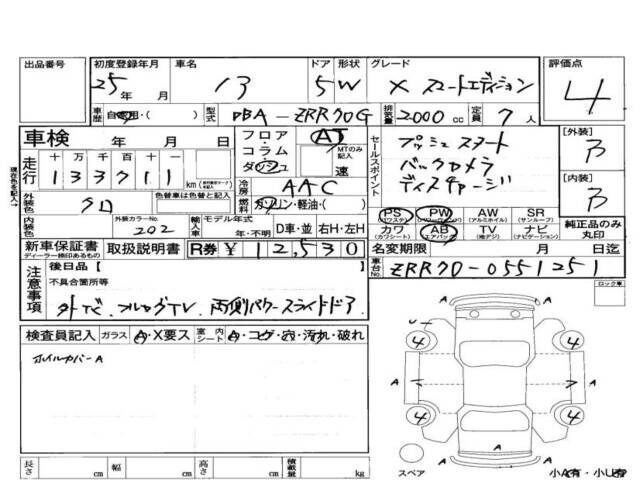 出品番号 初度登録年月 車名 ドア 形状 グレード 評価点
25年 月 13 5 W X スマートエディション 4
車歴 自家用・( ) 型式 DBA-ZRR70G 排気量 2000 cc 定員 7 人
車検 年 月 日 フロア・コラム・ダッシュ AT MTのみ記入 速 セールスポイント プッシュスタート [外装] B
走行 十 万 千 百 十 一 バックカメラ
1 3 3 7 1 1 km 冷房 AAC ディスチャージ [内装] B
現在色を記入→ 外装色 クロ 色替車は色替と元色を記入 燃料 ガソリン・軽油・( )
内装色 外装カラーNo. 202 輸入車 モデル年式 年・不明 D車・並 右H・左H
PS パワステ PW AW アルミホイル SR サンルーフ 純正品のみ丸印
カワ カワシート AB エアバッグ TV 地デジ ナビ ナビゲーション
新車保証書 ディーラー捺印あるもの 取扱説明書 R券 ¥ 12,530 名変期限 月 日迄
注意事項 後日品 [ ] 車台No. ZRR70-0551251
不具合箇所等 ロック車
外ナビ、フルセグTV、両側パワースライドドア
検査員記入 ガラス A・X要ス 室内シート A・コゲ・穴・汚れ・破れ
ホイルカバーA
4 A 4
A A A
4 A 4
長さ cm 幅 cm 高さ cm 積載量 kg スペア A 小A有・小U有